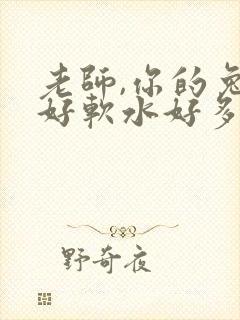 老師,你的兔
好軟水好多
野奇夜